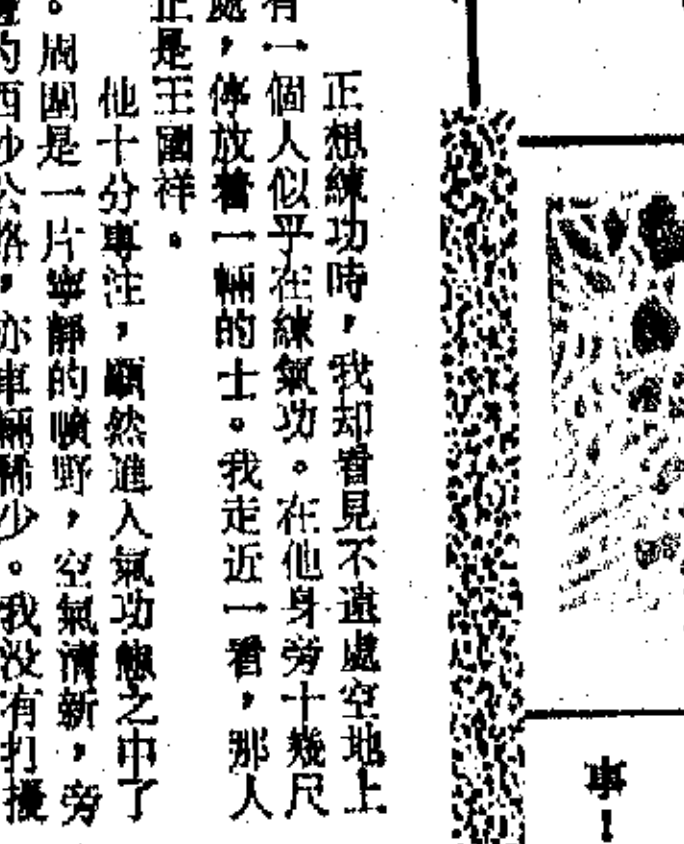 事！
正想練功時，我却看見不遠處空地上
有一個人似乎在練氣功。在他身旁十幾尺
處，停放着一輛的士。我走近一看，那人
正是王國祥。
他十分專注，顯然進入氣功態之中了
。周圍是一片寧靜的曠野，空氣清新，旁
的西沙公路，亦車輛稀少。我没有打擾